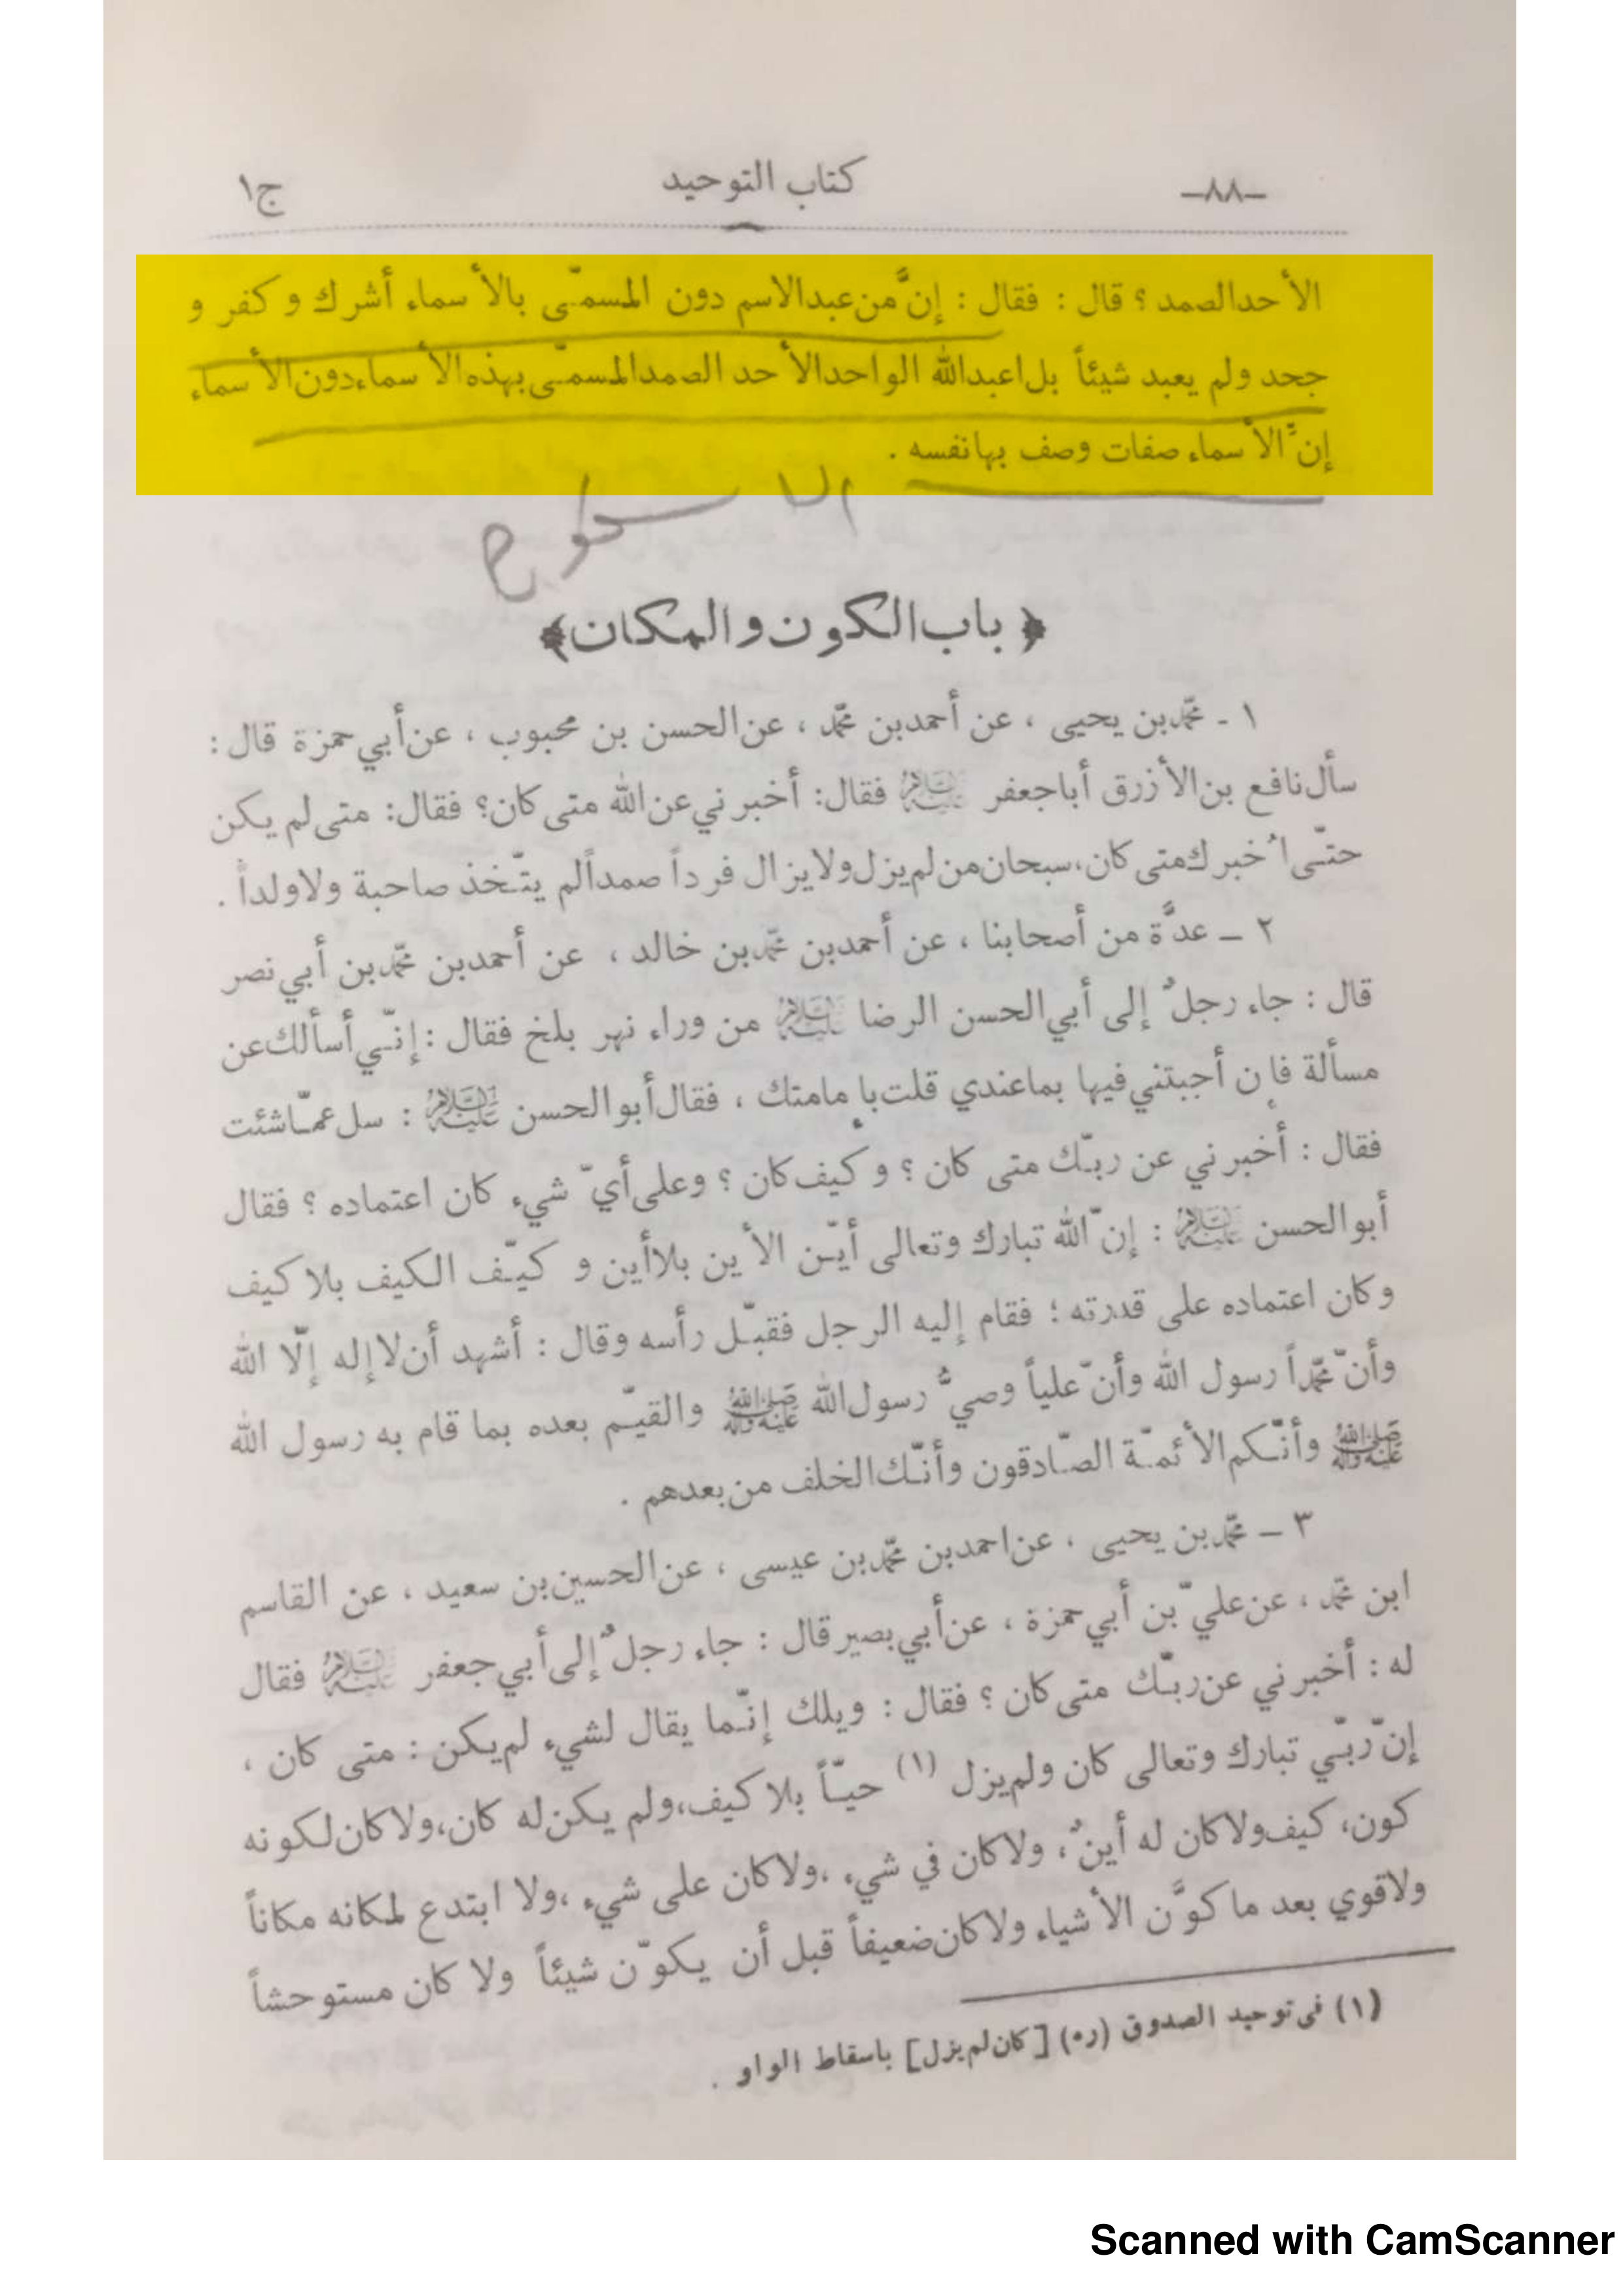 -٨٨-
كتاب التوحيد
ج١
الأحد الصمد ؟ قال : فقال : إنَّ من عبد الاسم دون المسمّى بالأسماء أشرك و كفر و
جحد ولم يعبد شيئاً بل اعبد الله الواحد الأحد الصمد المسمّى بهذه الأسماء دون الأسماء
إنَّ الأسماء صفات وصف بها نفسه .
﴿ باب الكون و المكان ﴾
١ ـ محمّد بن يحيى ، عن أحمد بن محمّد ، عن الحسن بن محبوب ، عن أبي حمزة قال :
سأل نافع بن الأزرق أبا جعفر عليه السلام فقال: أخبرني عن الله متى كان؟ فقال: متى لم يكن
حتّى اُخبرك متى كان، سبحان من لم يزل ولا يزال فرداً صمداً لم يتّخذ صاحبة ولا ولداً .
٢ ـ عدَّة من أصحابنا ، عن أحمد بن محمّد بن خالد ، عن أحمد بن محمّد بن أبي نصر
قال : جاء رجلٌ إلى أبي الحسن الرضا عليه السلام من وراء نهر بلخ فقال : إنّي أسألك عن
مسألة فإن أجبتني فيها بما عندي قلت بإمامتك ، فقال أبو الحسن عليه السلام : سل عمّا شئت
فقال : أخبرني عن ربّك متى كان ؟ و كيف كان ؟ وعلى أيّ شيء كان اعتماده ؟ فقال
أبو الحسن عليه السلام : إنّ الله تبارك وتعالى أيّن الأين بلا أين و كيّف الكيف بلا كيف
و كان اعتماده على قدرته ؛ فقام إليه الرجل فقبّل رأسه وقال : أشهد أن لا إله إلّا الله
وأنّ محمّداً رسول الله وأنّ علياً وصيُّ رسول الله صلى الله عليه وآله والقيّم بعده بما قام به رسول الله
صلى الله عليه وآله وأنّكم الأئمّة الصّادقون وأنّك الخلف من بعدهم .
٣ ـ محمّد بن يحيى ، عن احمد بن محمّد بن عيسى ، عن الحسين بن سعيد ، عن القاسم
ابن محمّد ، عن عليّ بن أبي حمزة ، عن أبي بصير قال : جاء رجلٌ إلى أبي جعفر عليه السلام فقال
له : أخبرني عن ربّك متى كان ؟ فقال : ويلك إنّما يقال لشيء لم يكن : متى كان ،
إنّ ربّي تبارك وتعالى كان ولم يزل (١) حيّاً بلا كيف، ولم يكن له كان، ولا كان لكونه
كون، كيف ولا كان له أينٌ، ولا كان في شيء ، ولا كان على شيء ، ولا ابتدع لمكانه مكاناً
ولا قوي بعد ما كوَّن الأشياء ولا كان ضعيفاً قبل أن يكوّن شيئاً ولا كان مستوحشاً
(١) فى توحيد الصدوق (ره) [ كان لم يزل ] باسقاط الواو .
Scanned with CamScanner